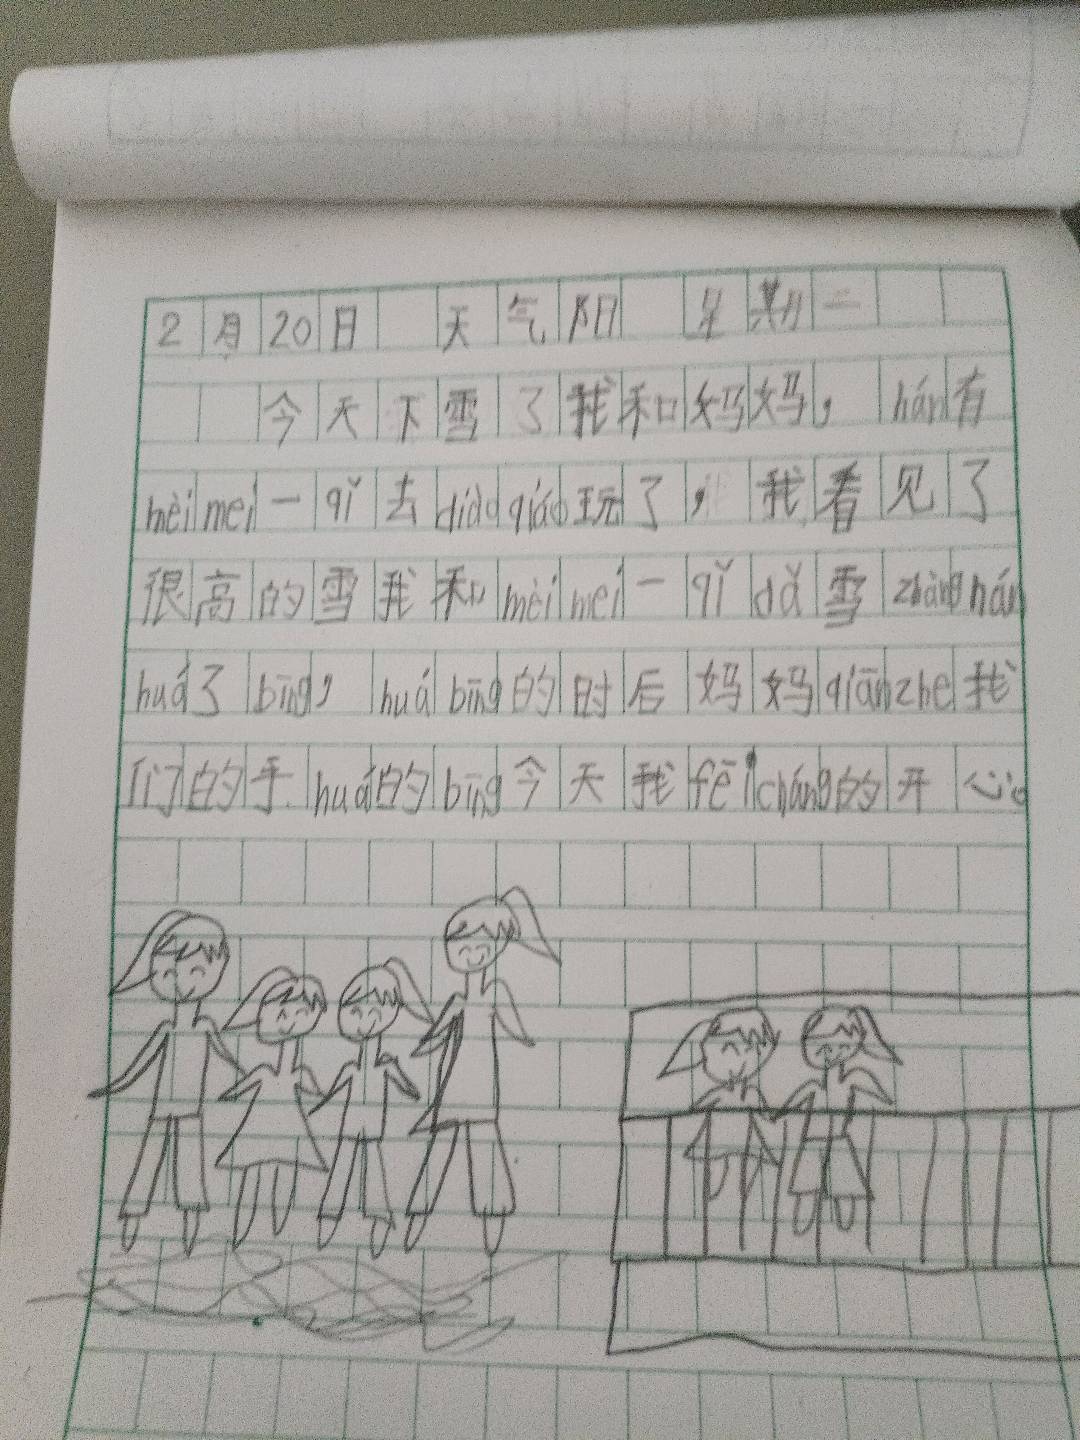 2月20日 天气阳 星期二
今天下雪了我和妈妈，hán有
mèimei一qǐ去diàoqiáo玩了，我看见了
很高的雪我和mèimei一qǐdǎ雪zhànghán
huá了bīng，huábīng的时后妈妈qiānzhe我
们的手huá的bīng今天我fēicháng的开心。